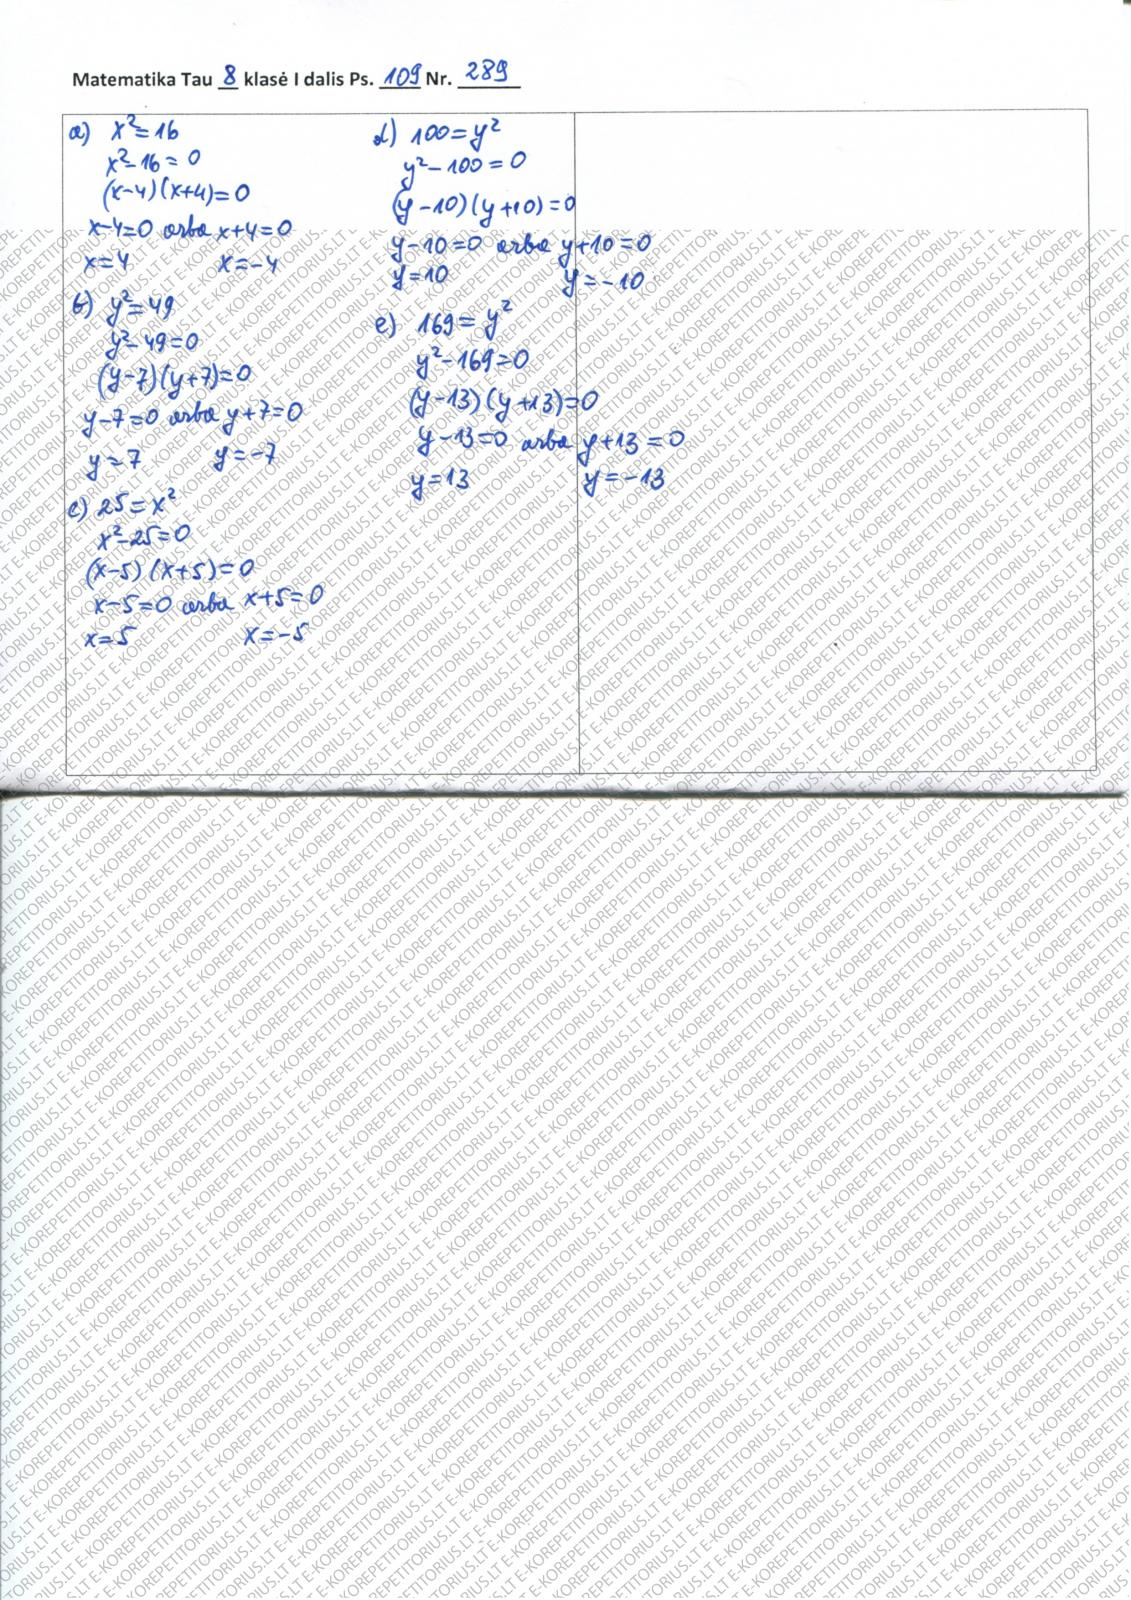 Matematika Tau 8 klasė I dalis Ps. 109 Nr. 289
a) x²=16
x²-16=0
(x-4)(x+4)=0
x-4=0 arba x+4=0
x=4 x=-4
b) y²=49
y²-49=0
(y-7)(y+7)=0
y-7=0 arba y+7=0
y=7 y=-7
c) 25=x²
x²-25=0
(x-5)(x+5)=0
x-5=0 arba x+5=0
x=5 x=-5
d) 100=y²
y²-100=0
(y-10)(y+10)=0
y-10=0 arba y+10=0
y=10 y=-10
e) 169=y²
y²-169=0
(y-13)(y+13)=0
y-13=0 arba y+13=0
y=13 y=-13
E-KOREPETITORIUS.LT